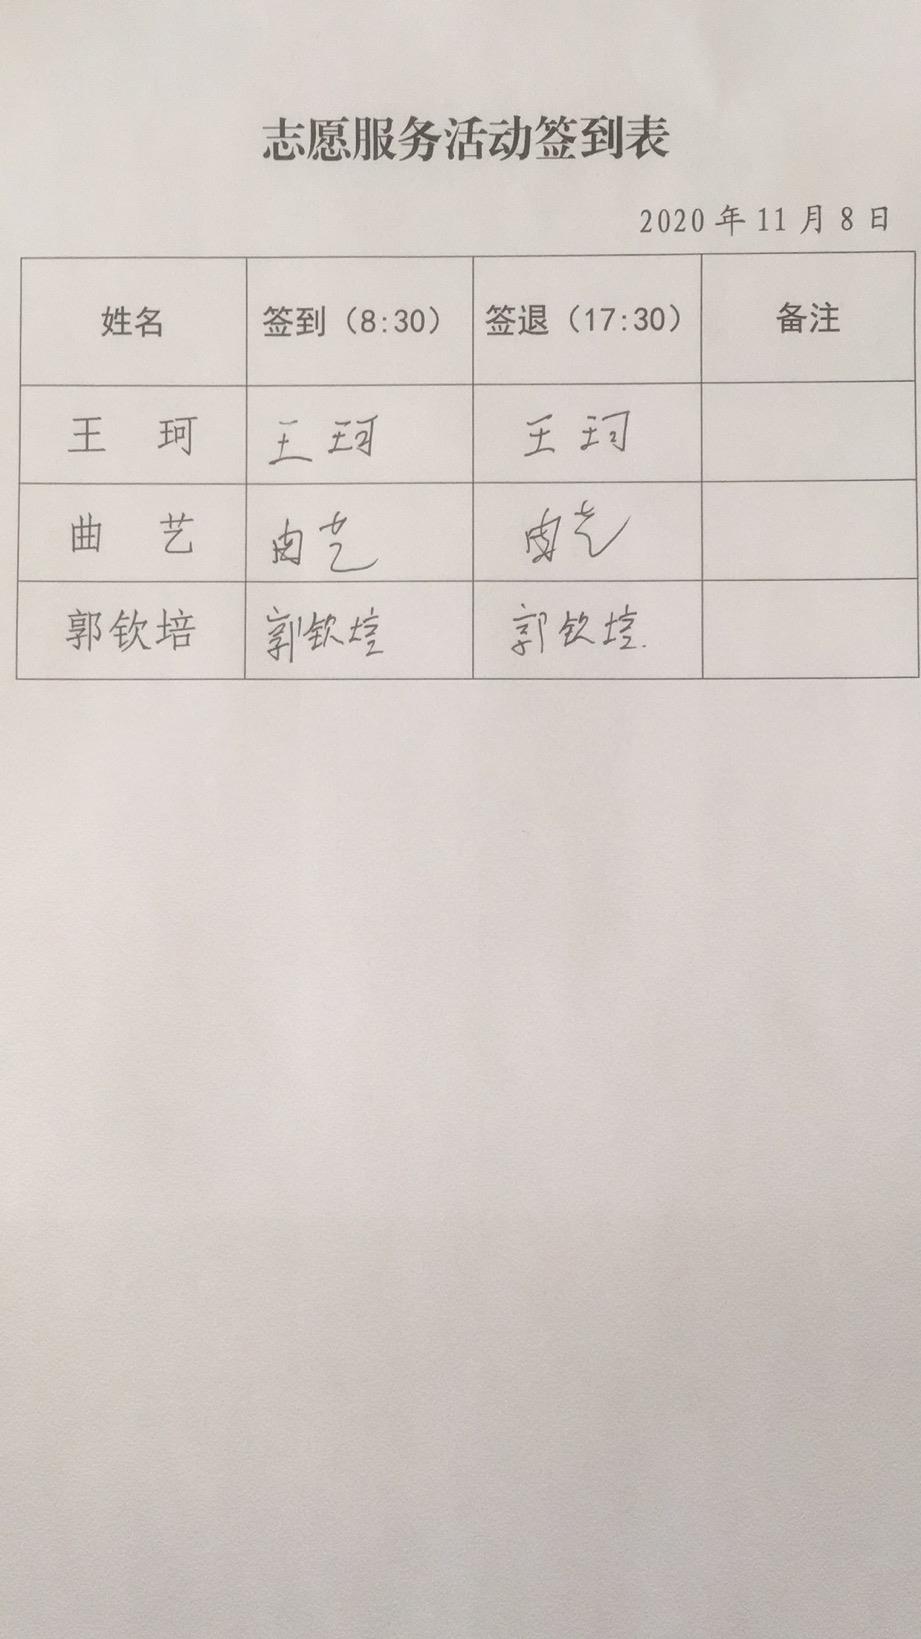 志愿服务活动签到表
2020年11月8日
姓名 签到（8:30） 签退（17:30） 备注
王 珂 王珂 王珂
曲 艺 曲艺 曲艺
郭钦培 郭钦培 郭钦培.